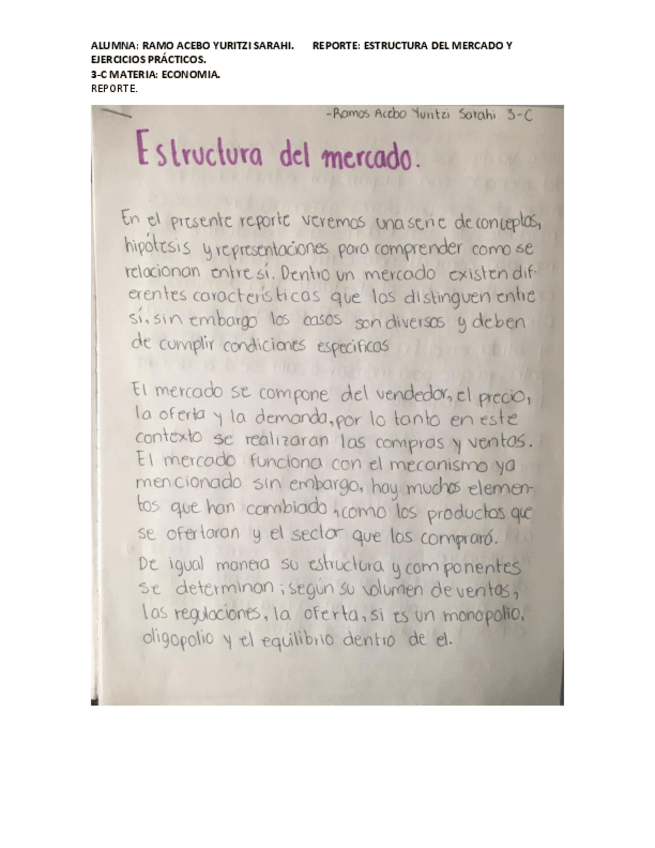 ALUMNA: RAMO ACEBO YURITZI SARAHI. REPORTE: ESTRUCTURA DEL MERCADO Y
EJERCICIOS PRÁCTICOS.
3-C MATERIA: ECONOMIA.
REPORTE.
-Ramos Acebo Yuritzi Sarahi 3-C
Estructura del mercado.
En el presente reporte veremos una serie de conceptos,
hipótesis y representaciones para comprender como se
relacionan entre sí. Dentro un mercado existen dif
erentes características que los distinguen entre
sí, sin embargo los casos son diversos y deben
de cumplir condiciones especificas
El mercado se compone del vendedor, el precio,
la oferta y la demanda, por lo tanto en este
contexto se realizaran las compras y ventas.
El mercado funciona con el mecanismo ya
mencionado sin embargo, hay muchos elemen-
tos que han cambiado, como los productos que
se ofertaran y el sector que los comprará.
De igual manera su estructura y componentes
se determinan; según su volumen de ventas,
las regulaciones, la oferta, si es un monopolio,
oligopolio y el equilibrio dentro de el.